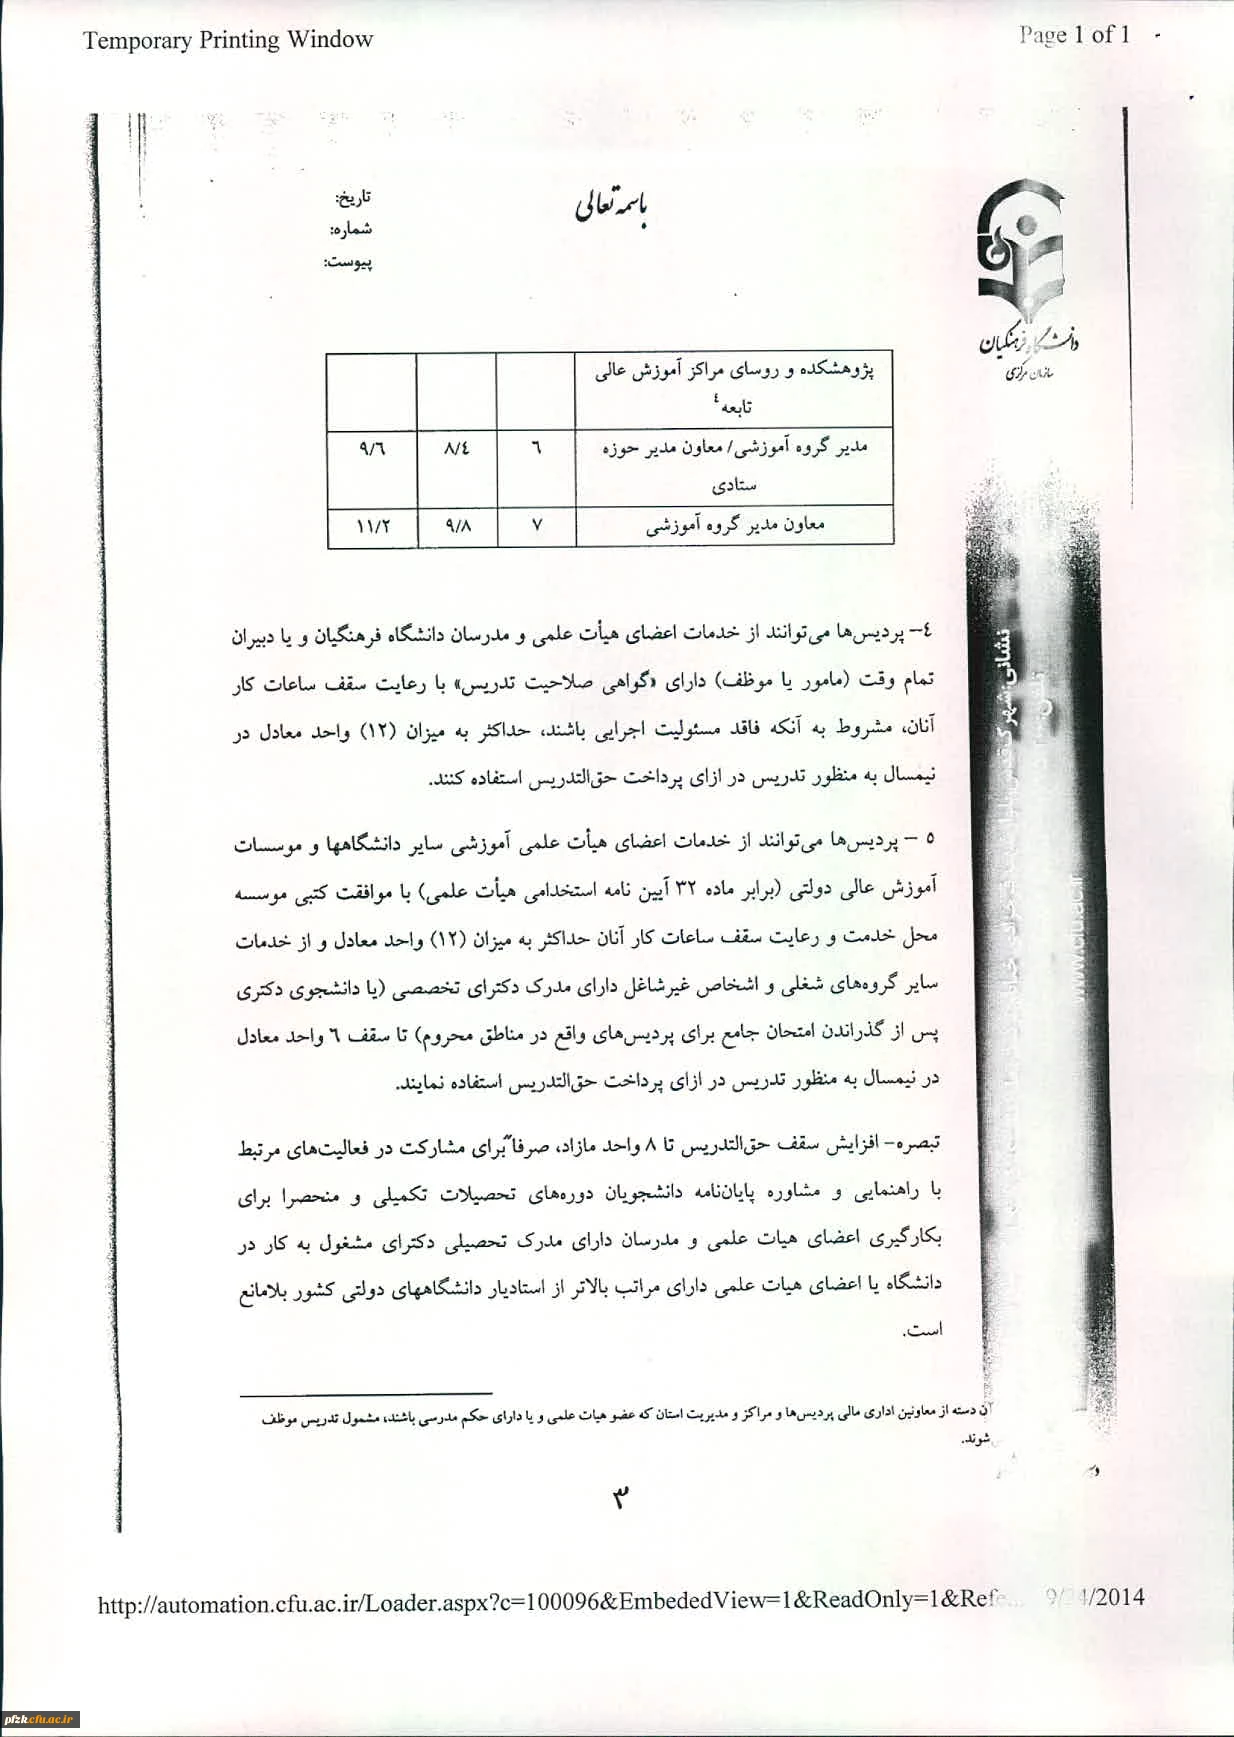 Temporary Printing Window
Page 1 of 1
باسمه تعالی
تاریخ:
شماره:
پیوست:
دانشگاه فرهنگیان
سازمان مرکزی
پژوهشکده و روسای مراکز آموزش عالی
تابعه٤
مدیر گروه آموزشی/ معاون مدیر حوزه
ستادی
٦
٨/٤
٩/٦
معاون مدیر گروه آموزشی
٧
٩/٨
١١/٢
٤– پردیس‌ها می‌توانند از خدمات اعضای هیأت علمی و مدرسان دانشگاه فرهنگیان و یا دبیران
تمام وقت (مامور یا موظف) دارای «گواهی صلاحیت تدریس» با رعایت سقف ساعات کار
آنان، مشروط به آنکه فاقد مسئولیت اجرایی باشند، حداکثر به میزان (١٢) واحد معادل در
نیمسال به منظور تدریس در ازای پرداخت حق‌التدریس استفاده کنند.
٥ – پردیس‌ها می‌توانند از خدمات اعضای هیأت علمی آموزشی سایر دانشگاهها و موسسات
آموزش عالی دولتی (برابر ماده ٣٢ آیین نامه استخدامی هیأت علمی) با موافقت کتبی موسسه
محل خدمت و رعایت سقف ساعات کار آنان حداکثر به میزان (١٢) واحد معادل و از خدمات
سایر گروه‌های شغلی و اشخاص غیرشاغل دارای مدرک دکترای تخصصی (یا دانشجوی دکتری
پس از گذراندن امتحان جامع برای پردیس‌های واقع در مناطق محروم) تا سقف ٦ واحد معادل
در نیمسال به منظور تدریس در ازای پرداخت حق‌التدریس استفاده نمایند.
تبصره– افزایش سقف حق‌التدریس تا ٨ واحد مازاد، صرفاً برای مشارکت در فعالیت‌های مرتبط
با راهنمایی و مشاوره پایان‌نامه دانشجویان دوره‌های تحصیلات تکمیلی و منحصرا برای
بکارگیری اعضای هیات علمی و مدرسان دارای مدرک تحصیلی دکترای مشغول به کار در
دانشگاه یا اعضای هیات علمی دارای مراتب بالاتر از استادیار دانشگاههای دولتی کشور بلامانع
است.
نشانی: شهرک
www.cfu.ac.ir
آن دسته از معاونین اداری مالی پردیس‌ها و مراکز و مدیریت استان که عضو هیات علمی و یا دارای حکم مدرسی باشند، مشمول تدریس موظف
شوند.
٣
http://automation.cfu.ac.ir/Loader.aspx?c=100096&EmbededView=1&ReadOnly=1&Refe... 9/24/2014
pfzk.cfu.ac.ir